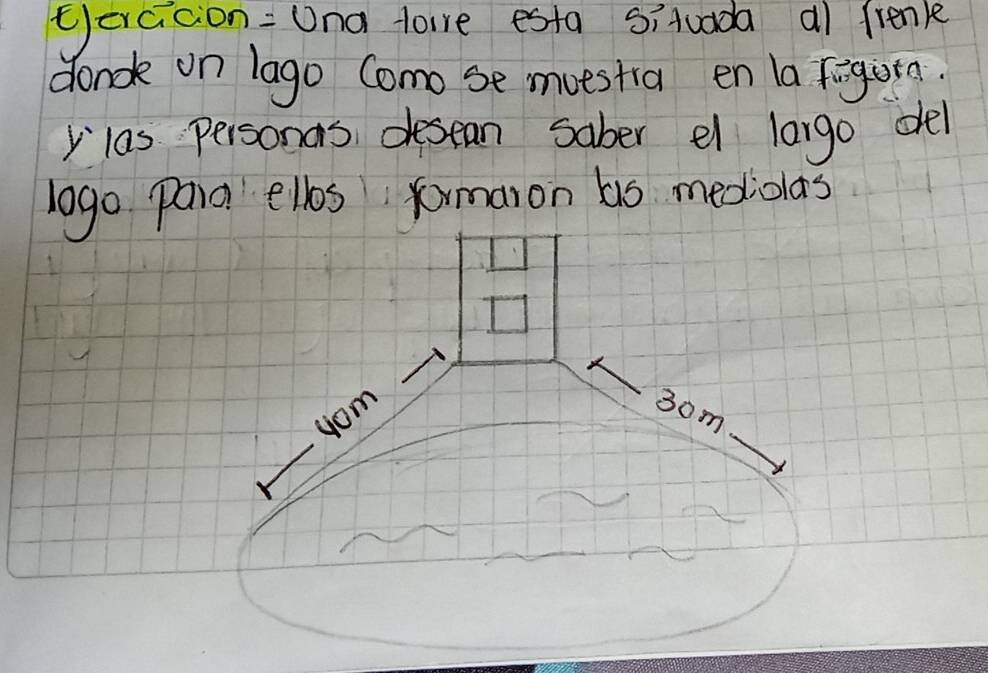 Ejercicion = Una torre esta situada al frente
donde un lago Como se muestra en la figura.
y las personas desean saber el largo del
lago para ellos formaron las medidas
40m
30m